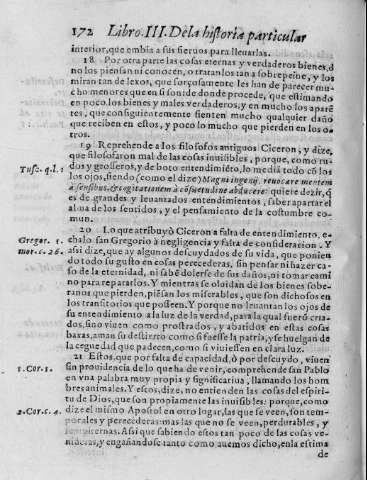 172 Libro. III. De la historia particular
interior, que embia a sus sieruos para lleuarlas.
18 Por otra parte las cosas eternas y verdaderos bienes, ó
no los piensan ni conocen, o tratan los tan a sobrepeine, y los
miran tan de lexos, que forçosamente les han de parecer mu-
cho menores que en si son: de donde procede, que estimando
en poco los bienes y males verdaderos, y en mucho los aparẽ
tes, que consiguiẽtemente sienten mucho qualquier daño
que reciben en estos, y poco lo mucho que pierden en los o-
tros.
19 Reprehende a los filosofos antiguos Ciceron, y dize,
que filosofaron mal de las cosas inuisibles, porque, como ru-
Tusc. q.l. 1 dos y grosseros, y de boto entendimiẽto, lo mediã todo cõ los
los ojos, siendo (como el dize) Magni ingenij reuocare mentem
à sensibus, & cogitationem à cõsuetudine abducere: quiere dezir, q̃
es de grandes y leuantados entendimientos, saber apartar el
alma de los sentidos, y el pensamiento de la costumbre co-
mun.
20 Lo que atribuyò Ciceron a falta de entendimiento, e-
Gregor. 1. chalo san Gregorio à negligencia y falta de consideracion. Y
mor. c. 26. assi dize, que ay algunos descuydados de su vida, que ponien
do todo su gusto en cosas perecederas, sin pensar ni hazer ca-
so de la eternidad, ni sabẽ dolerse de sus daños, ni tomar cami
no para repararlos. Y mientras se oluidan de los bienes sobe-
ranos que pierden, piẽsan los miserables, que son dichosos en
los transitorios que posseen. Y porque no leuantan los ojos de
su entendimiento a la luz de la verdad, para la qual fuerõ cria-
dos, sino viuen como prostrados, y abatidos en estas cosas
baxas, aman su destierro como si fuesse la patria, y se huelgan de
la ceguedad que padecen, como si viuiessen en clara luz.
21 Estos, que por falta de capacidad, ò por descuydo, viuen
1. Cor. 1. sin prouidencia de lo que ha de venir, comprehende san Pablo
en vna palabra muy propia y significatiua, llamando los hom
bres animales. Y estos, dize, no entienden las cosas del espiri-
tu de Dios, que son propiamente las inuisibles: porque, como
2. Cor. c. 4. dize el mismo Apostol en otro lugar, las que se veen, son tem-
porales y perecederas: mas las que no se veen, perdurables, y
sempiternas. Assi que sabiendo estos tan poco de las cosas ve-
nideras, y engañandose tanto como auemos dicho, en la estima
de